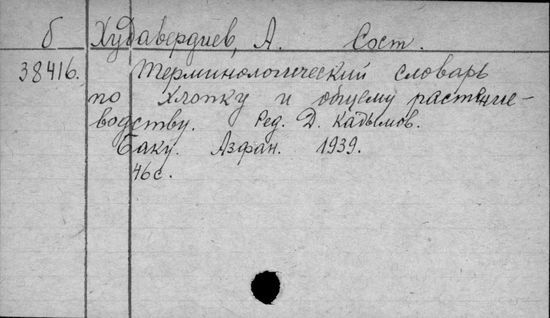 б Худавердиев, А. Сост.
38416. Терминологический словарь
по хлопку и общему растение-
водству. Ред. Д. Кадымов.
Баку. Азфан. 1939.
46с.